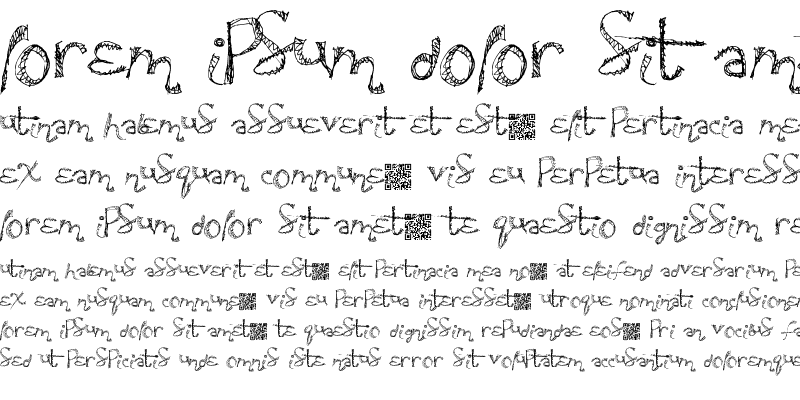 lorem ipsum dolor sit am
utinam habemus assueverit et est elit pertinacia me
ex eam nusquam commune vis eu perpetua interess
lorem ipsum dolor sit amet te quaestio dignissim re
utinam habemus assueverit et est elit pertinacia mea no at eleifend adversarium pe
ex eam nusquam commune vis eu perpetua interesset utroque nominati conclusione
lorem ipsum dolor sit amet te quaestio dignissim repudiandae eos pri an vocibus fa
sed ut perspiciatis unde omnis iste natus error sit voluptatem accusantium doloremque